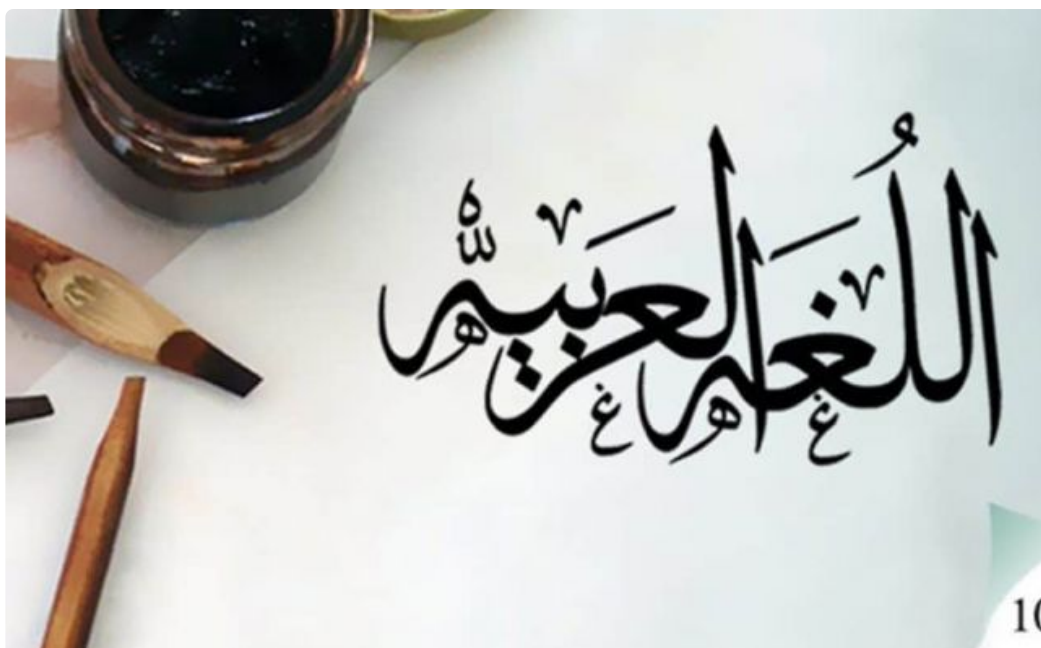 اللُغه العربيه
10